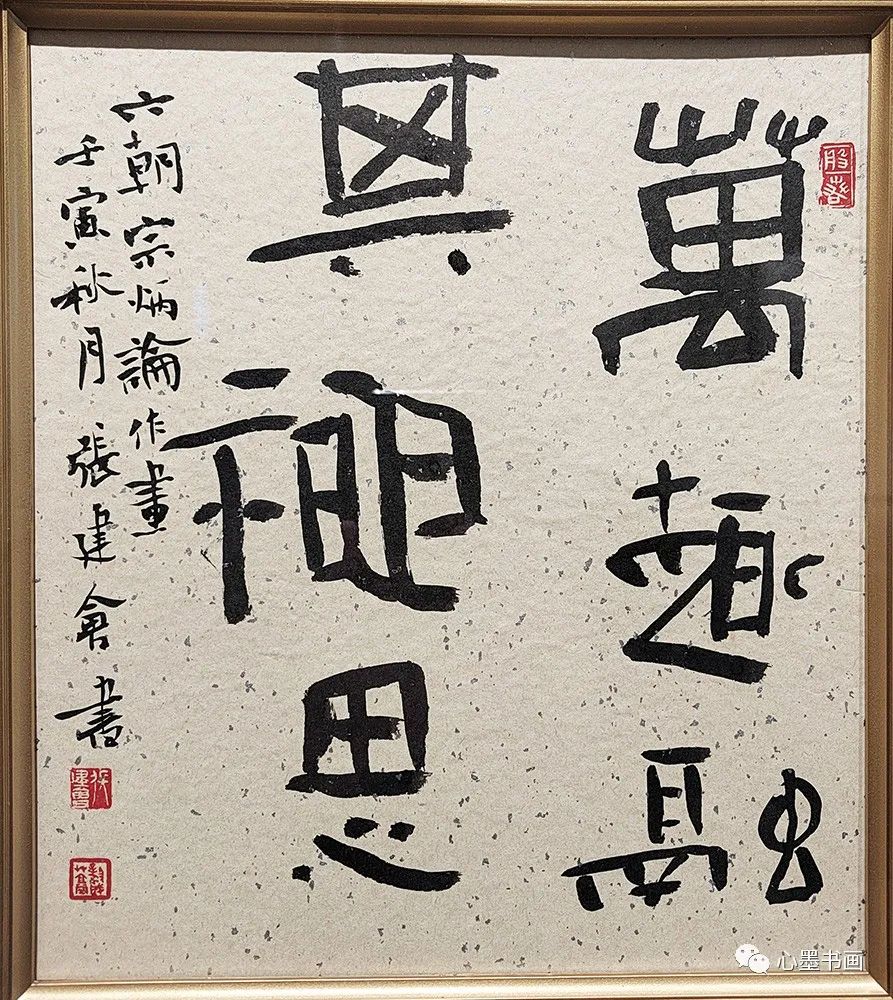 萬趣融
其神思
六朝宗炳論作畫
壬寅秋月張建會書
心墨书画